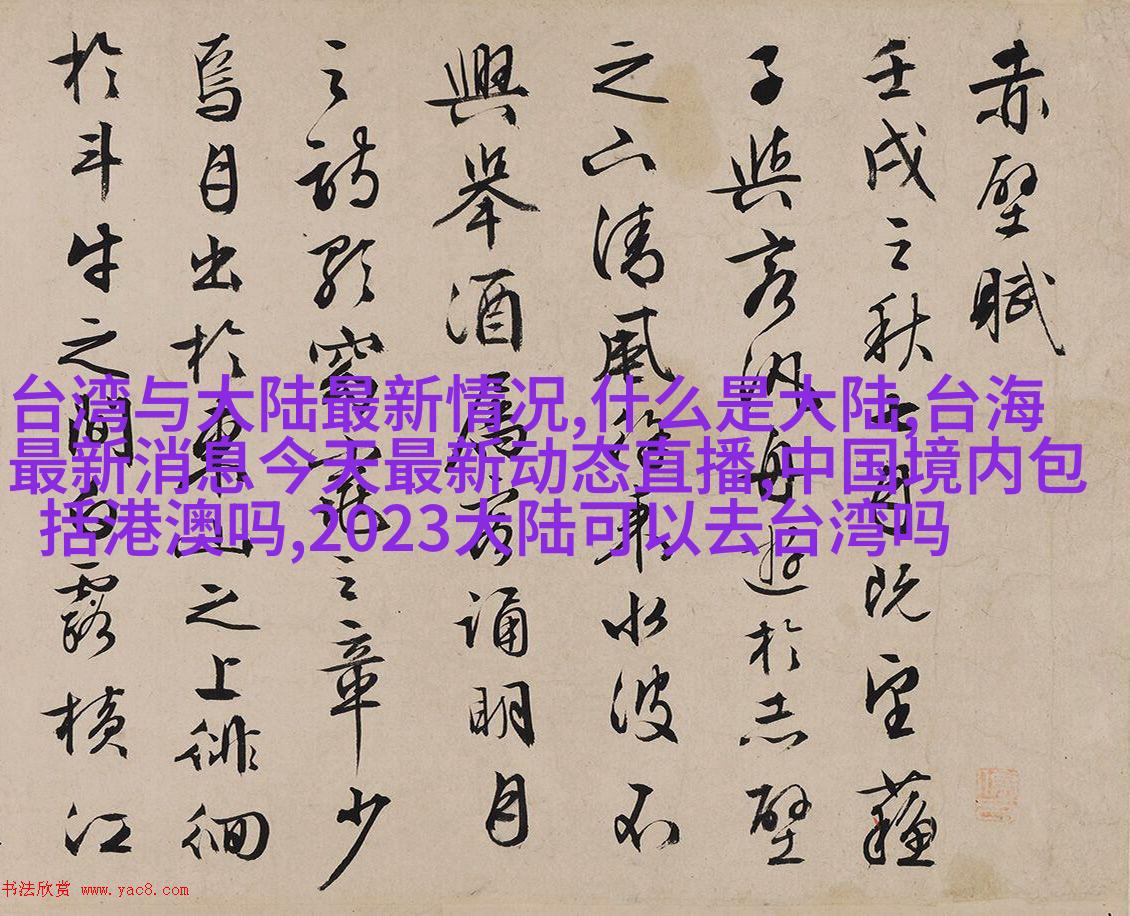 赤壁賦
壬戌之秋七月既望蘓
子與客汎舟遊於赤壁
之下清風徐來水波不
興舉酒屬客誦明月
之詩歌窈窕之章少
焉月出於東山之上徘徊
於斗牛之間白露橫江
台湾与大陆最新情况,什么是大陆,台海
最新消息今天最新动态直播,中国境内包
括港澳吗,2023大陆可以去台湾吗
书法欣赏 www.yac8.com